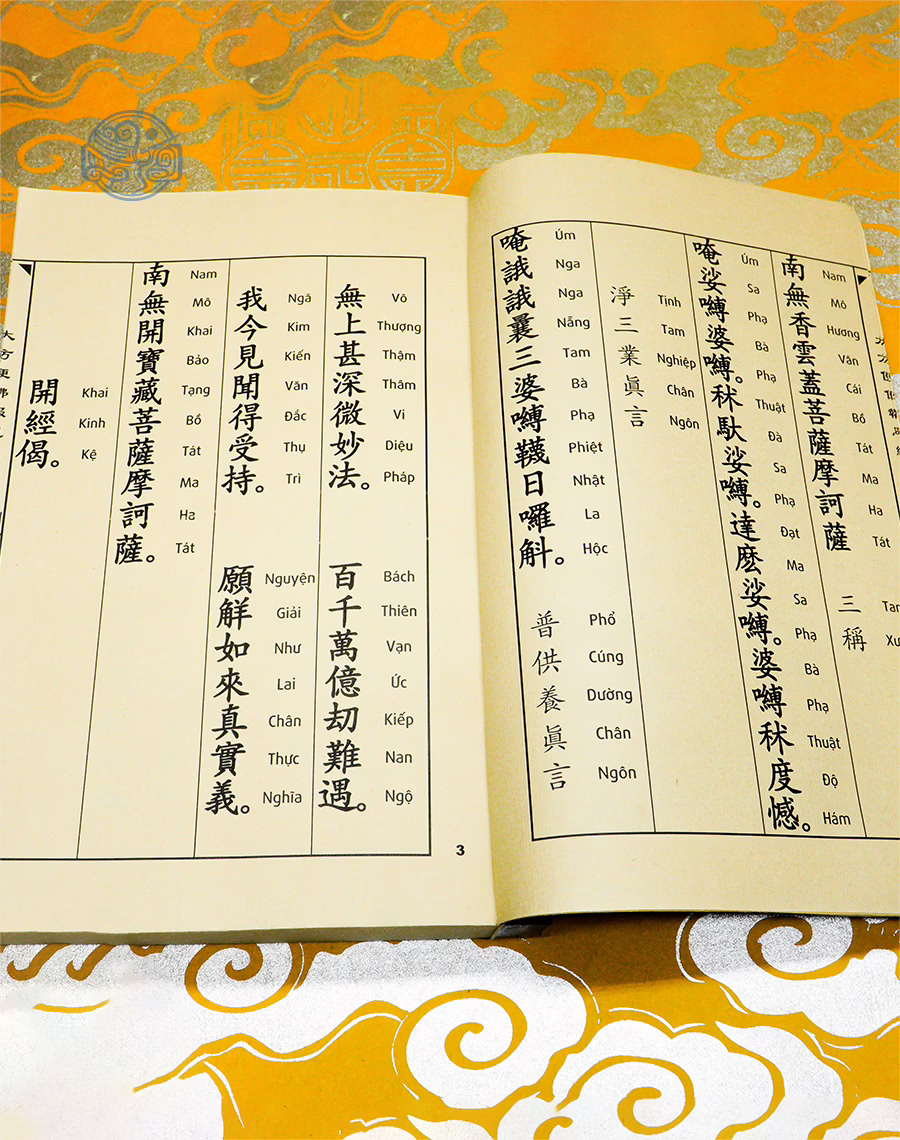 南無香雲蓋菩薩摩訶薩 三稱
Nam Mô Hương Vân Cái Bồ Tát Ma Ha Tát
唵娑嚩婆嚩。秫馱娑嚩。達麽娑嚩。婆嚩秫度憾。
Úm Sa Phạ Bà Phạ Thuật Đà Sa Phạ Đạt Ma Sa Phạ Bà Phạ Thuật Độ Hám
淨三業眞言
Tịnh Tam Nghiệp Chân Ngôn
唵誐誐曩三婆嚩韈日囉斛。 普供養眞言
Úm Nga Nga Nẵng Tam Bà Phạ Phiệt Nhật La Hộc Phổ Cúng Dường Chân Ngôn
無上甚深微妙法。 百千萬億刧難遇。
Vô Thượng Thậm Thâm Vi Diệu Pháp Bách Thiên Vạn Ức Kiếp Nan Ngộ
我今見聞得受持。 願觧如來真實義。
Ngã Kim Kiến Văn Đắc Thụ Trì Nguyện Giải Như Lai Chân Thực Nghĩa
南無開寶藏菩薩摩訶薩。
Nam Mô Khai Bảo Tạng Bồ Tát Ma Ha Tát
開經偈。
Khai Kinh Kệ
3